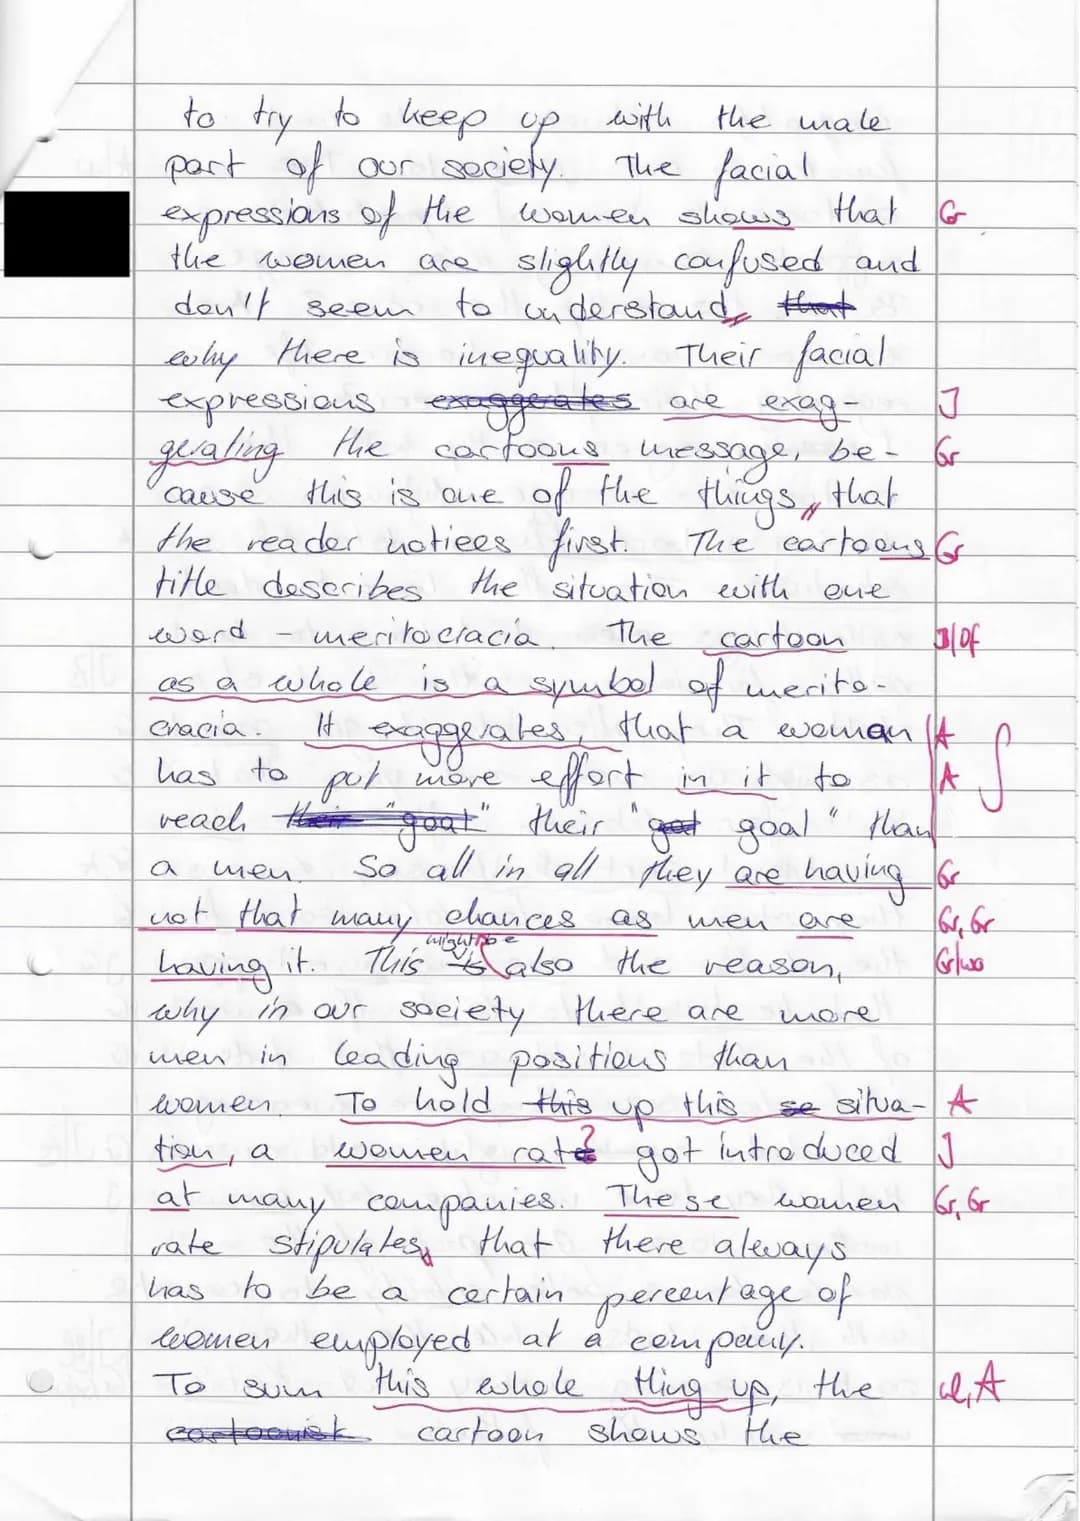 to try to keep up with the male
part of our society. The facial
expressions of the women shows that G
the women are slightly confused and
don't seem to understand, that
why there is inequality. Their facial
expressions exaggerates are exag- J
gerating the cartoons message, be- Gr
cause this is one of the things, that
the reader notices first. The cartoons Gr
title describes the situation with one
word - meritocracia. The cartoon J/Df
as a whole is a symbol of merito-
cracia. It exaggerates, that a woman A
has to put more effort in it to A
reach their "goal" their "got goal" than
a men. So all in all they are having Gr
not that many chances as men are Gr, Gr
might be
having it. This is also the reason, Gr/wo
why in our society there are more
men in leading positions than
women. To hold this up this se situa- A
tion, a women rate ? got introduced J
at many companies. These women Gr, Gr
rate stipulates, that there always
has to be a certain percentage of
women employed at a company.
To sum this whole thing up, the A
cartoonist cartoon shows the